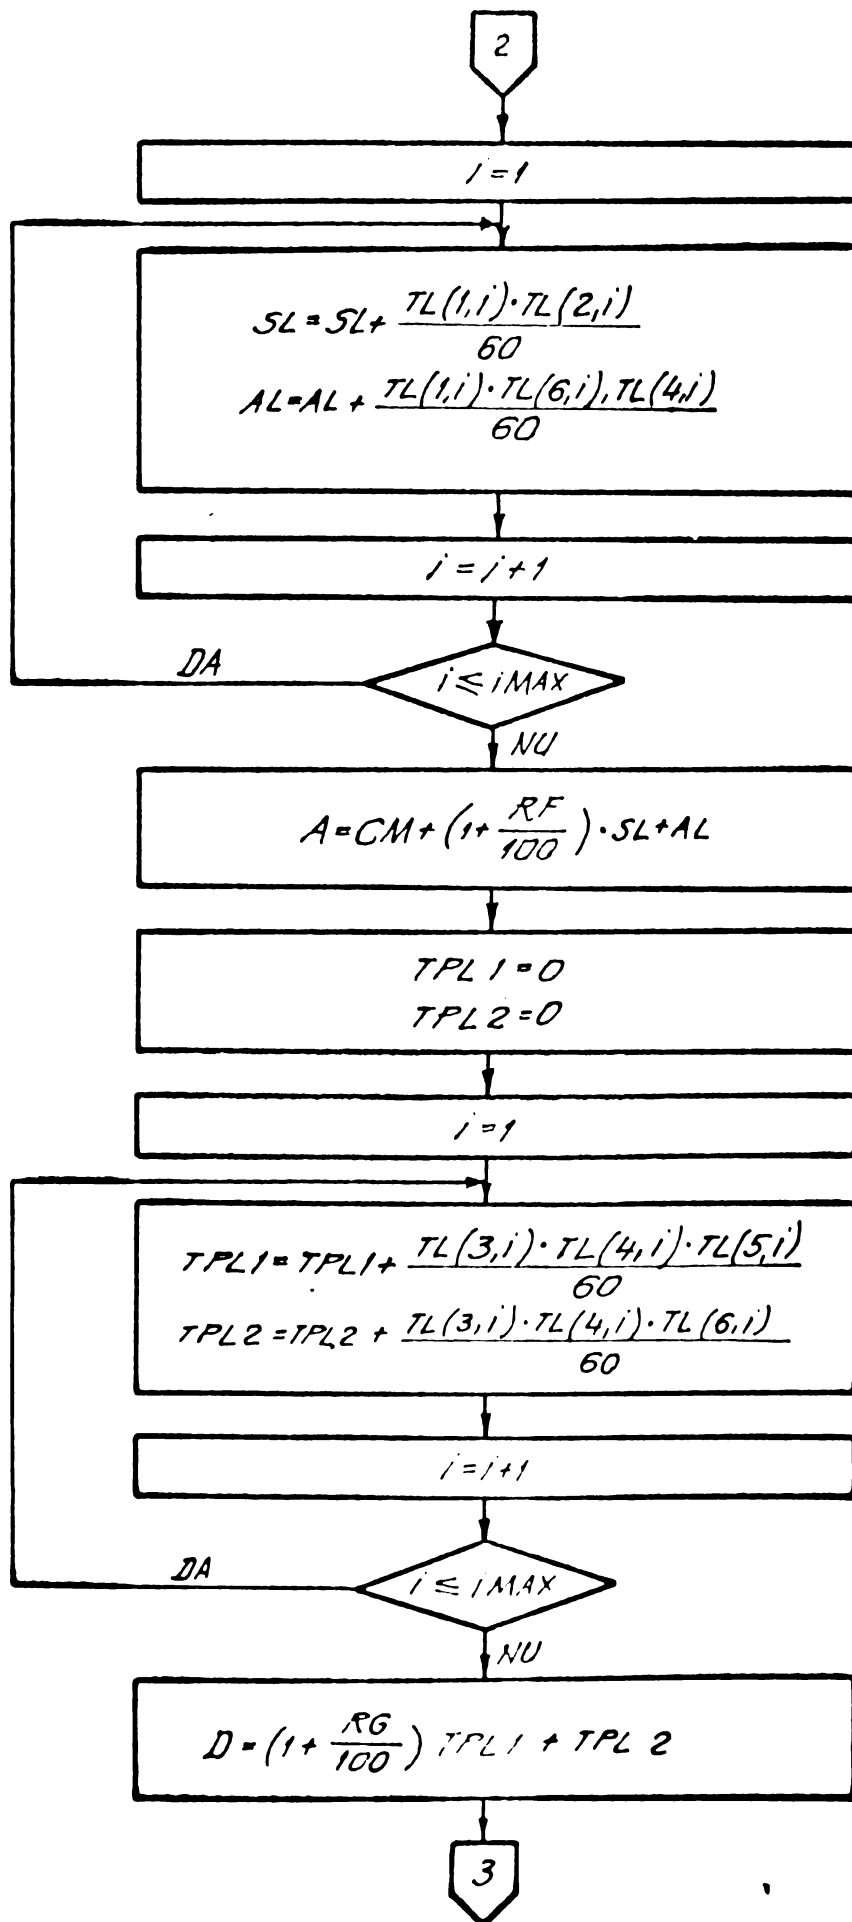 2
i=1
SL=SL+ TL(1,i)·TL(2,i)
60
AL=AL+ TL(1,i)·TL(6,i),TL(4,i)
60
i=i+1
DA
i≤iMAX
NU
A=CM+(1+ RF/100)·SL+AL
TPL1=0
TPL2=0
i=1
TPL1=TPL1+ TL(3,i)·TL(4,i)·TL(5,i)
60
TPL2=TPL2+ TL(3,i)·TL(4,i)·TL(6,i)
60
i=i+1
DA
i≤iMAX
NU
D=(1+ RG/100) TPL1+TPL2
3